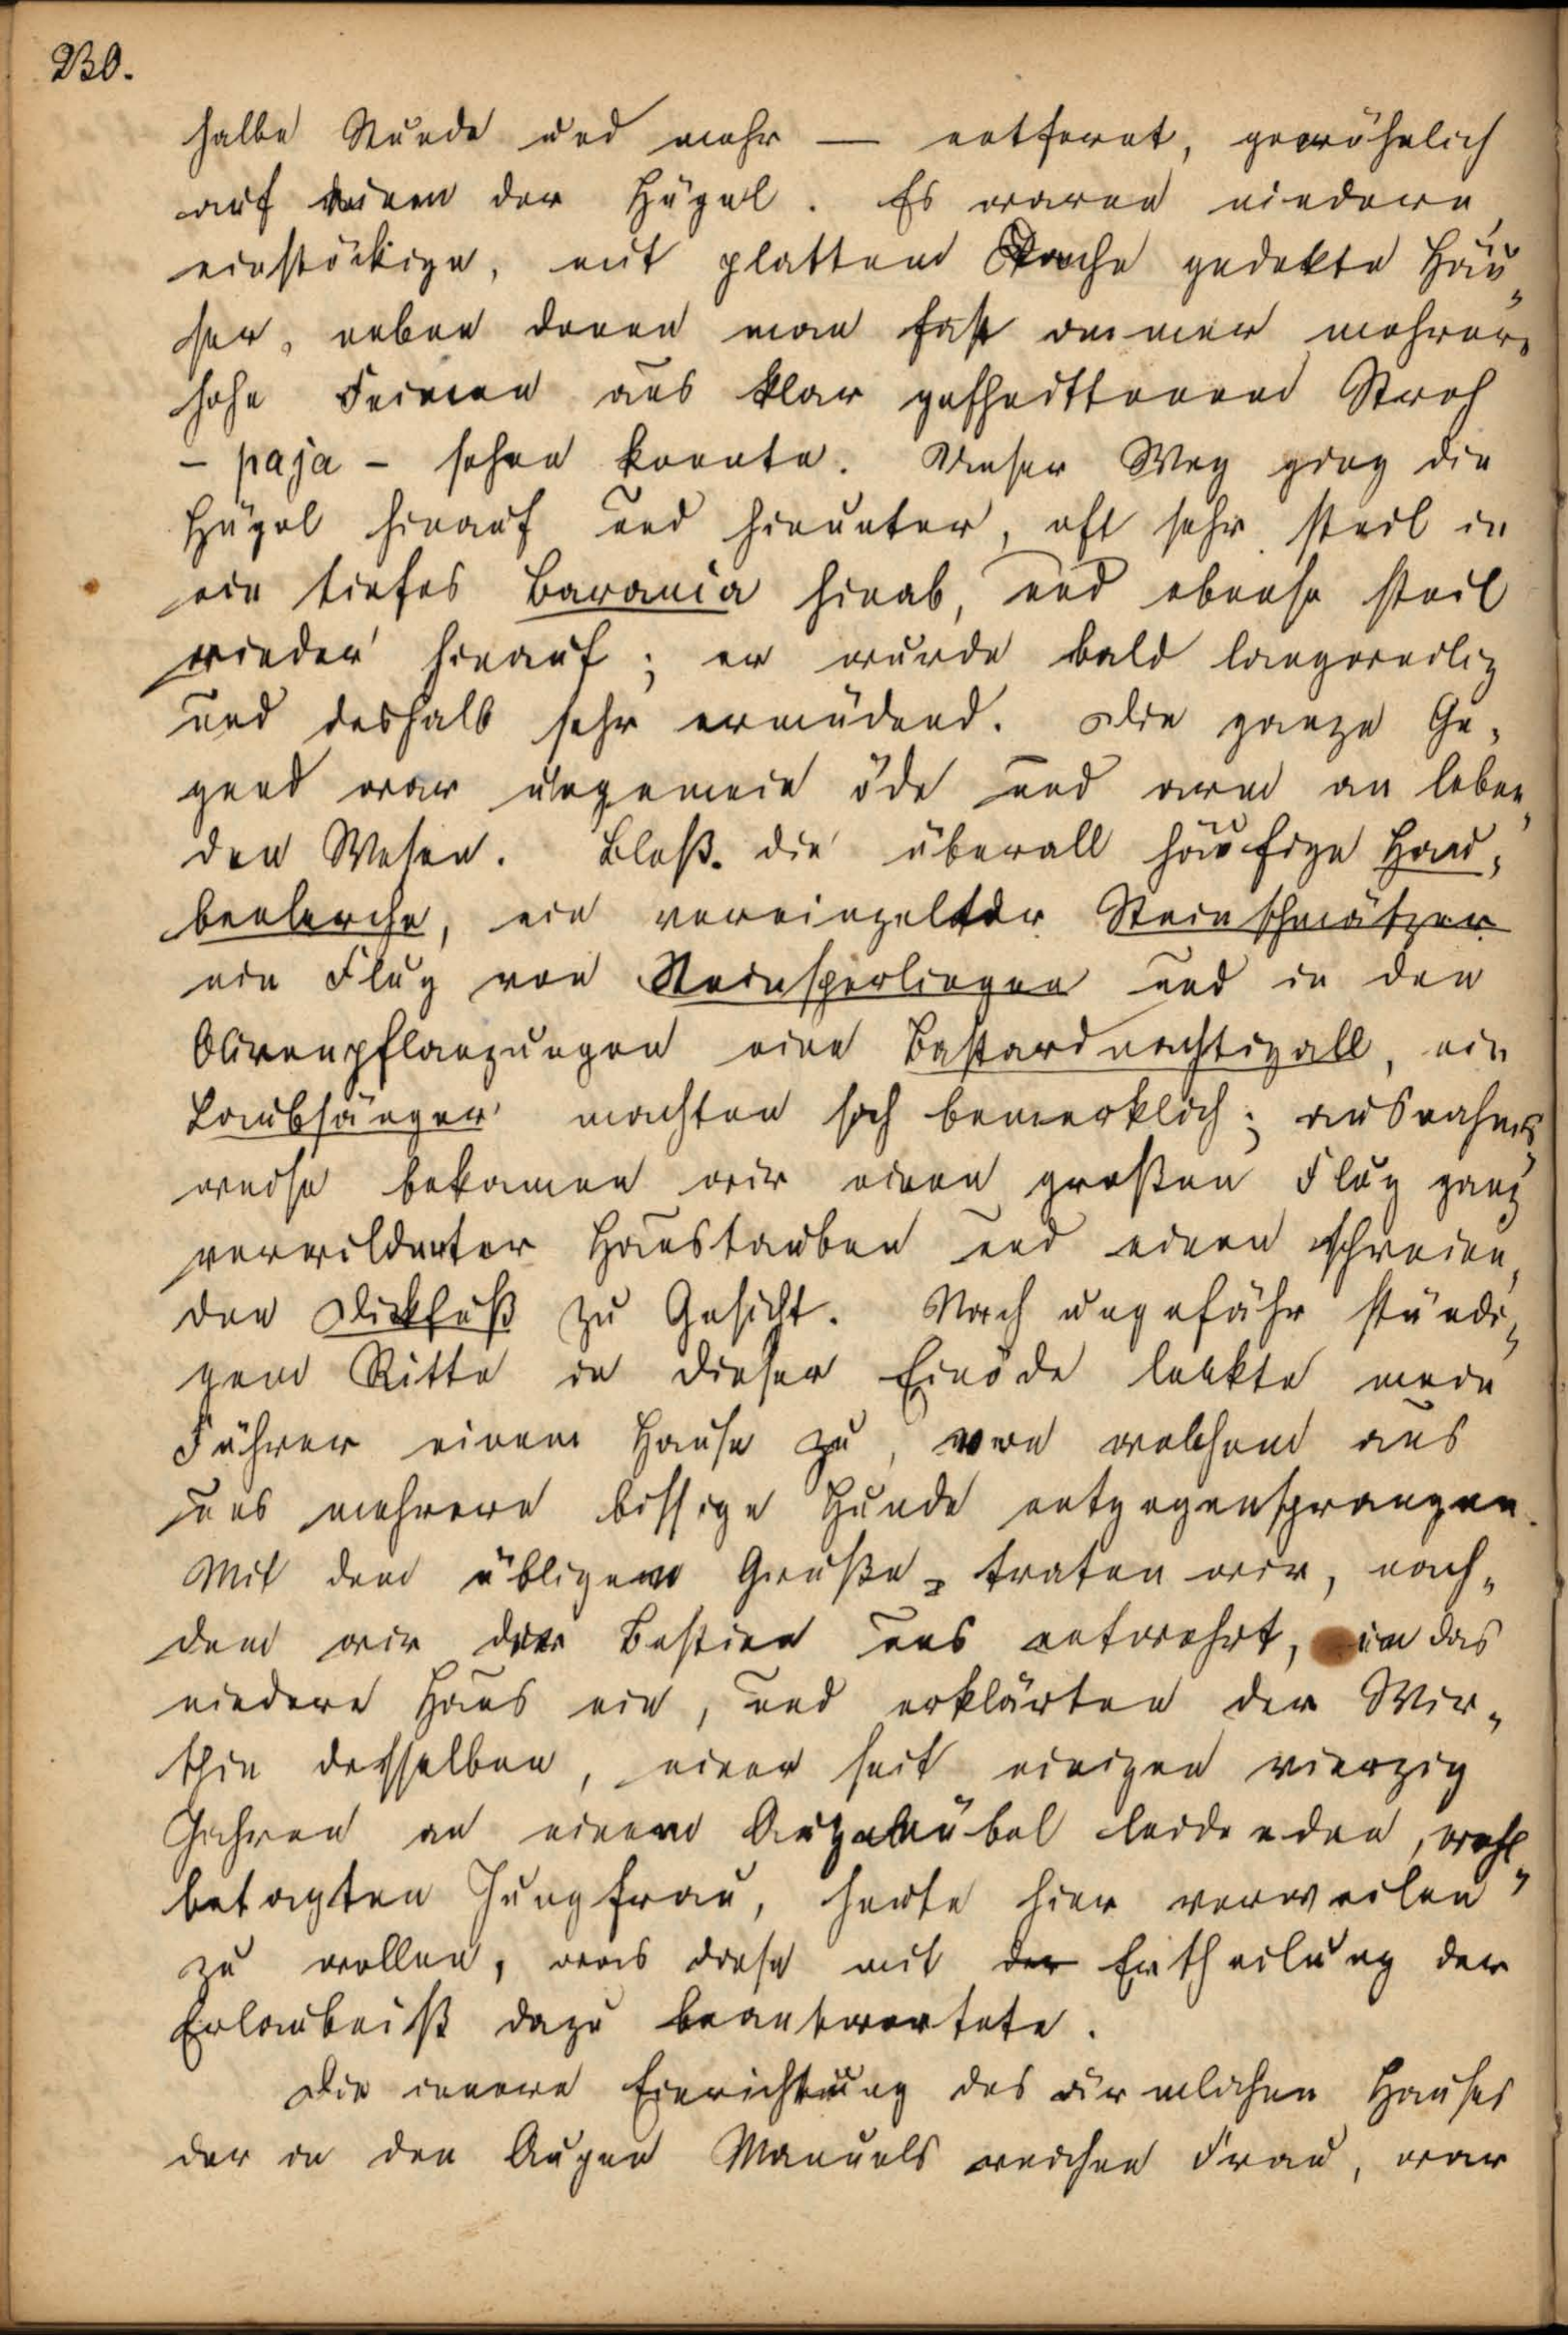 230.
halbe Stunde und mehr — entfernt, gewöhnlich
auf einem der Hügel. Es waren niedere,
einstöckige, mit plattem Dache gedekte Häu„
ser, neben denen man fast immer mehrere
hohe Feimen aus klar geschnittenem Stroh
– paja – sehen konnte. Unser Weg ging die
Hügel hinauf und hinunter, oft sehr steil in
ein tiefes Baranca hinab, und ebenso steil
wieder hinauf; er wurde bald langweilig
und deshalb sehr ermüdend. Die ganze Ge„
gend war ungemein öde und arm an leben„
den Wesen. Bloß die überall häufige Hau„
benlerche, ein vereinzelter Steinschmätzer
ein Flug von Steinsperlingen und in den
Olivenpflanzungen eine Bastardnachtigall, ein
Laubsänger machten sich bemerklich; ausnahms„
weise bekamen wir einen großen Flug ganz
verwilderter Haustauben und einen schreien„
den Dickfuß zu Gesicht. Nach ungefähr stündi„
gem Ritte in dieser Einöde lenkte mein
Führer einem Hause zu, von welchem aus
uns mehrere bissige Hunde entgegensprangen.
Mit dem übligem Gruße traten wir, nach„
dem wir der Bestien uns entwehrt, in das
niedere Haus ein, und erklärten der Wir„
thin desselben, einer seit einigen vierzig
Jahren an einem Augenübel leidenden, wohl„
betagten Jungfrau, heute hier verweilen
zu wollen, was diese mit der Ertheilung der
Erlaubniß dazu beantwortete.
Die innere Einrichtung des ärmlichen Hauses
der in den Augen Manuels reichen Frau, war